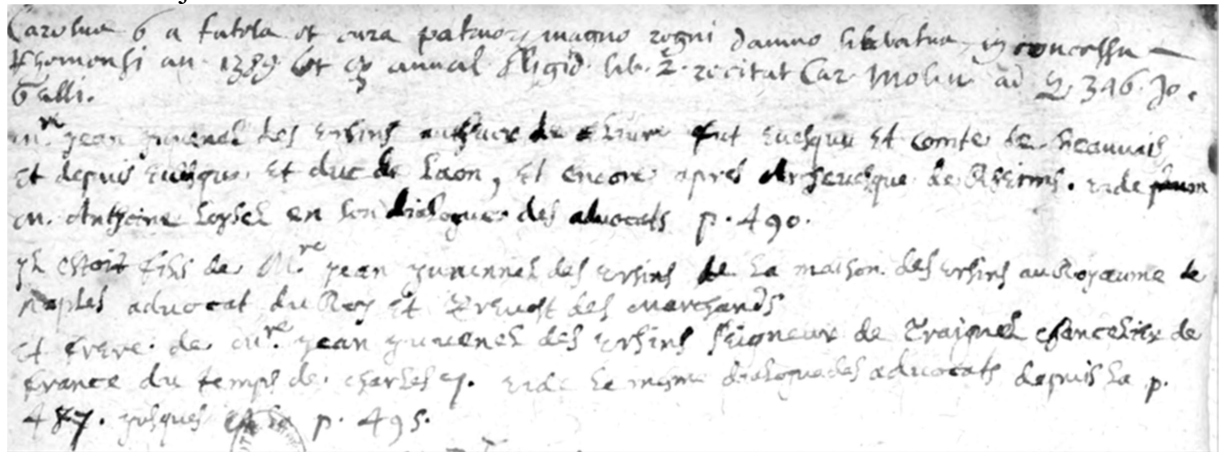 Carolus 6 a tutela et cura patruorum magno regni damno liberatur, in concessu
Rhemensi an. 1389 annal lib. 2. recitat Car. Molin ad q. 346. Jo.
Galli.
Mre. Jean Juvenal des Ursins autheur de ce livre fut Evesque Et Comte de Beauvais
Et depuis Evesque Et duc de Laon, Et encore apres Archevesque de Rheims. vide
M. Anthoine Loysel en son dialogue des advocats p. 490.
Il estoit fils de Mre Jean Juvennel des Ursins de la maison des Ursins au Royaume de
Naples advocat du Roy Et Prevost des Marchands
Et frere de Mre. Jean Juvenel des Ursins Seigneur de Traignel Chancelier de
France du temps de Charles 7. vide le mesme dialogue des advocats depuis la p.
487. jusques p. 495.